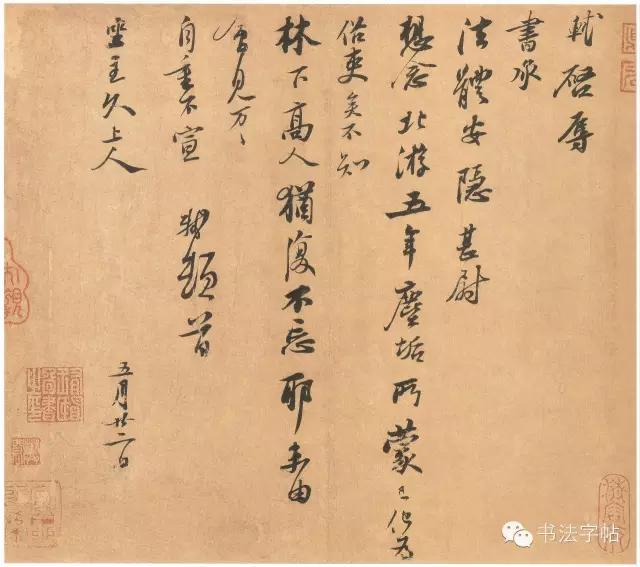 軾啓辱
書承
法體安隱甚慰
想念北游五年塵垢所蒙已化為
俗吏矣不知
林下高人猶復不忘耶未由
會見万万
自重不宣 軾頓首
坐主久上人
五月廿二日
书法字帖